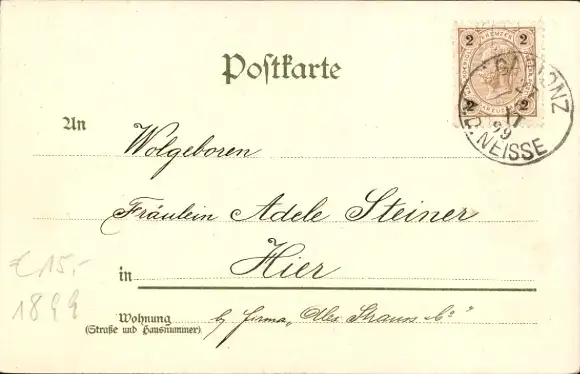 Postkarte
2 KREUZER 2
2 2
GABLONZ
17
99
A.D. NEISSE
An
Wolgeboren
Fräulein Adele Steiner
in Hier
€ 15,-
1899
Wohnung by firma „Alex Strauss & Co"
(Straße und Hausnummer)